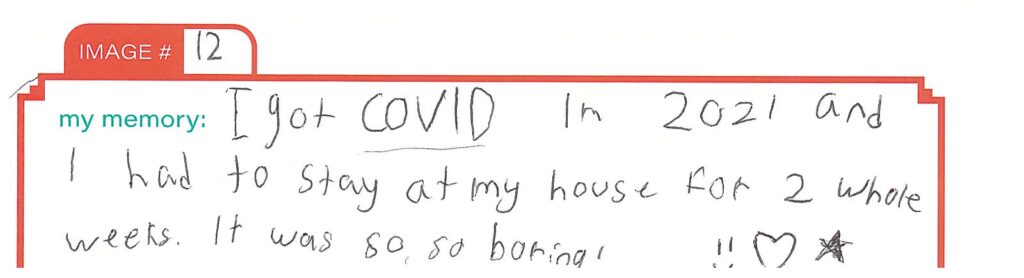 IMAGE # 12
my memory: I got COVID In 2021 and
I had to stay at my house For 2 whole
weeks. It was so, so boring! !! ♡ ★